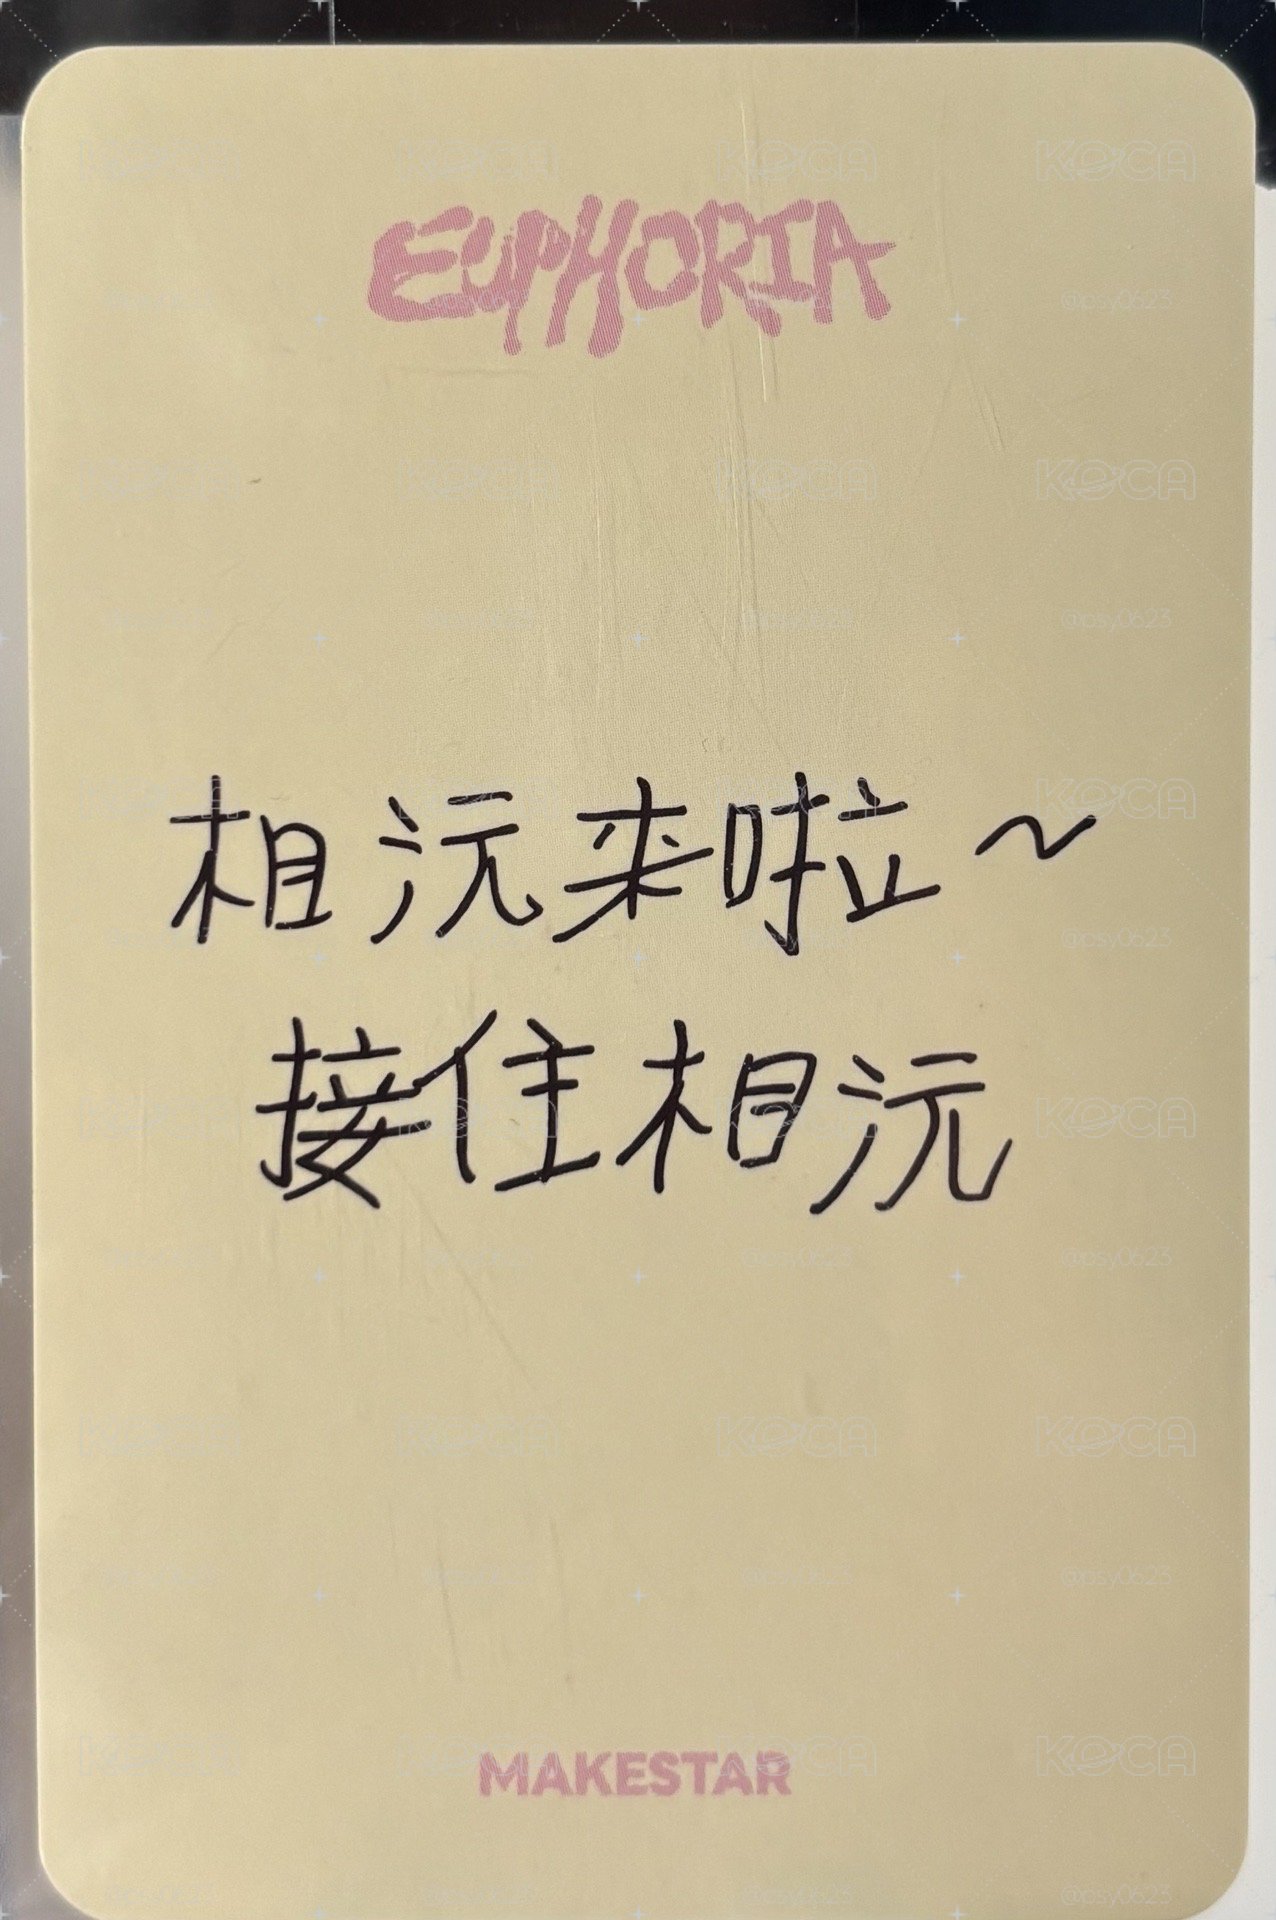 EUPHORIA
相沅来啦~
接住相沅
MAKESTAR
KOCA
@psy0623